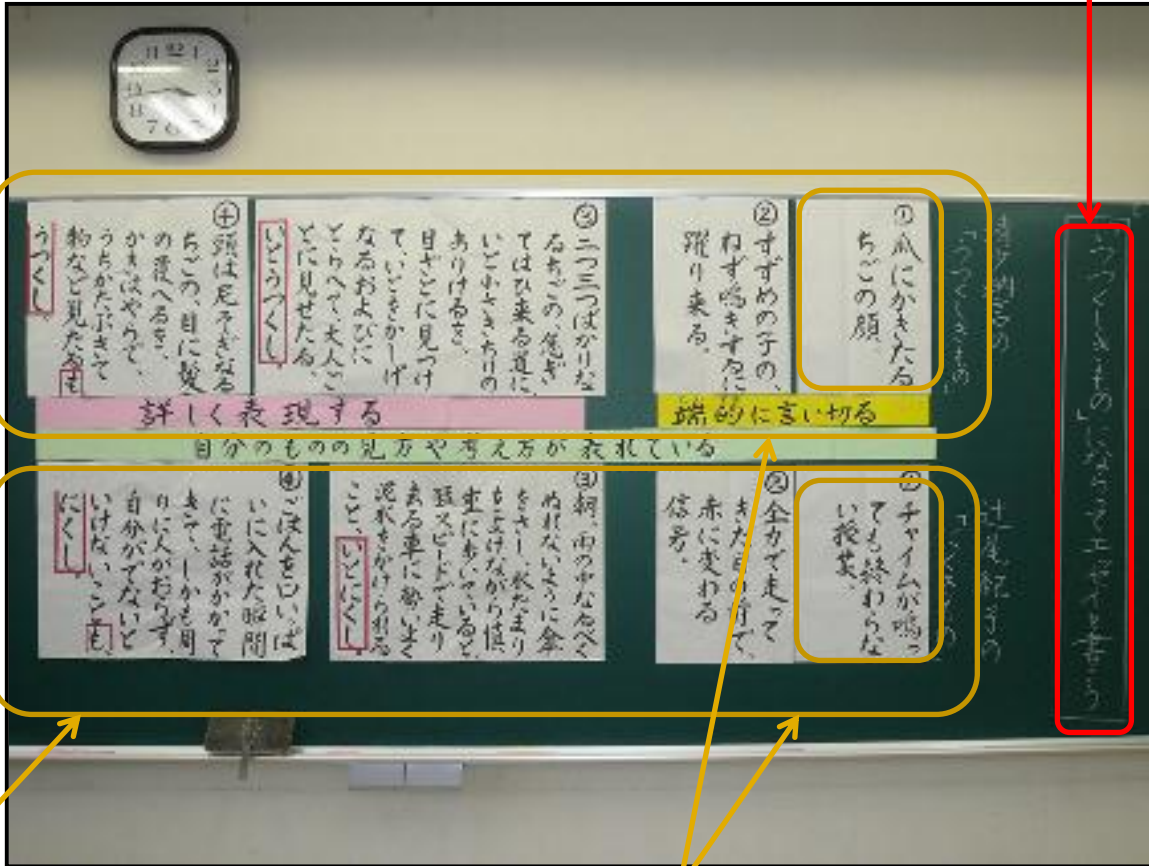 「うつくしきもの」
エッセイを書こう
清少納言の
「うつくしきもの」
①瓜にかきたる
ちごの顔。
②すずめの子の、
ねず鳴きするに
躍り来る。
③二つ三つばかりな
るちごの、急ぎ
てはひ来る道に、
いと小さきちりの
ありけるを、
目ざとに見つけ
て、いとをかしげ
なるおよびに
とらへて、大人ご
とに見せたる、
いとうつくし。
④頭は尼そぎなる
ちごの、目に髪
の覆へるを、
かきはやらで、
うちかたぶきて
物など見たるも
うつくし。
端的に言い切る
詳しく表現する
自分のものの見方や考え方が表れている
「にくきもの」
①チャイムが鳴っ
ても終わらな
い授業。
②全力で走って
きた目の前で、
赤に変わる
信号。
③朝、雨の中なるべく
ぬれないように傘
をさし、水たまり
をよけながら慎
重に歩いていると、
猛スピードで走り
去る車に勢いよく
泥水をかけられる
こと、いとにくし。
④ごはんを口いっぱ
いに入れた瞬間
に電話がかかって
きて、しかも周
りに人がおらず、
自分がでないと
いけないことも、
にくし。